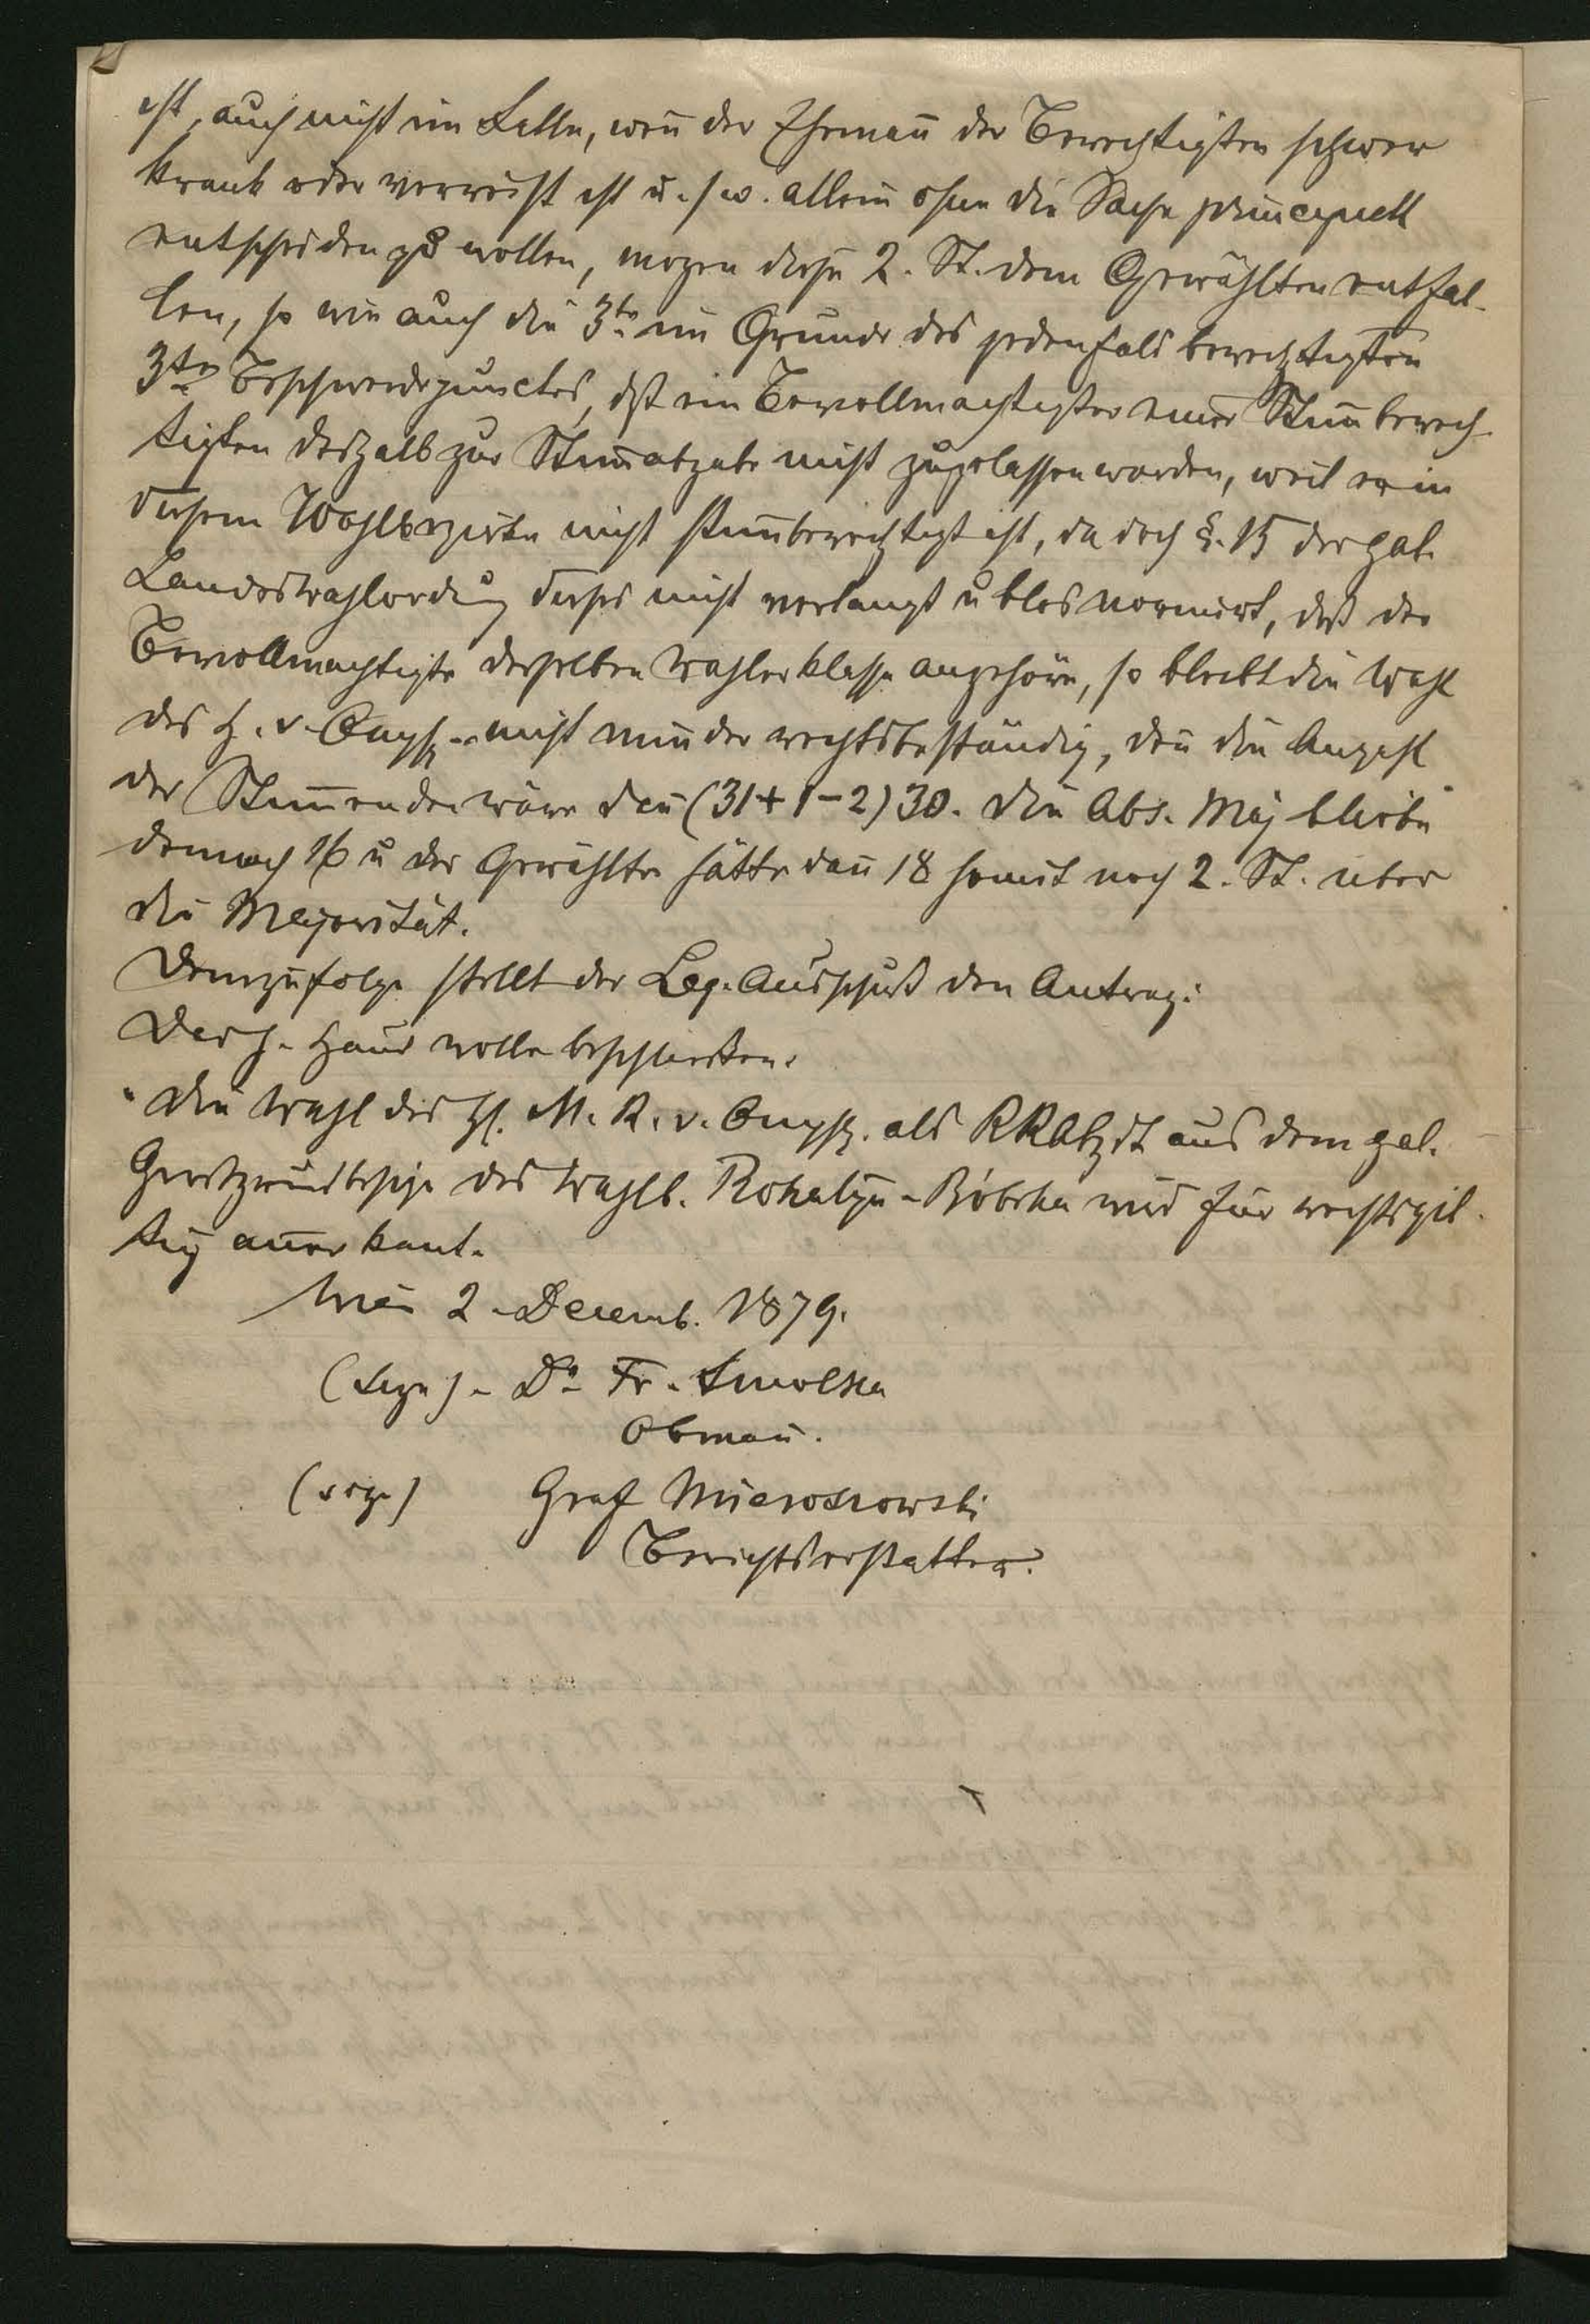 ist, auch nicht im Falle, wen̄ der Eheman̄ der Berechtigten schwer
krank oder verreist ist u. s w. allein ohne die Sache principiell
entscheiden zu wollen, mogen diese 2. St. dem Gewählten entfal-
len, so wie auch die 3te im Grunde des jedenfals berechtigten
3ten Beschwerdepunctes, dß ein Bevollmachtigter einer Stim̄berech-
tigten deshalb zur Stim̄abgabe nicht zugelassen worden, weil er in
diesem Wahlbezirke nicht stim̄berechtigt ist, da doch §. 15 der gal.
Landeswahlordng dieses nicht verlangt u blos normirt, daß der
Bevollmachtigte derselben Wahlerklasse angehöre, so bleibt die Wahl
des H. v. nicht minder rechtsbeständig, den̄ die Anzahl
der Stim̄enden wäre dan̄ (31+1-2) 30. die Abs. Maj bliebe
demnach 16 u der Gewählte hätte dan̄ 18 somit noch 2. St. über
die Majorität.
Demzufolge stellt der Leg. Ausschuß den Antrag:
Das h. Haus wolle beschließen.
"Die Wahl des H. M. R. v. als RRAbgdt aus dem gal.
Großgrundbesize des Wahlb. Rohatyn-Bóbrka wird für rechtsgil-
tig anerkant.
Wien 2. Decemb. 1879.
Dr. Fr. Smolka
Obman̄.
Graf Mieroszowski
Berichterstatter.